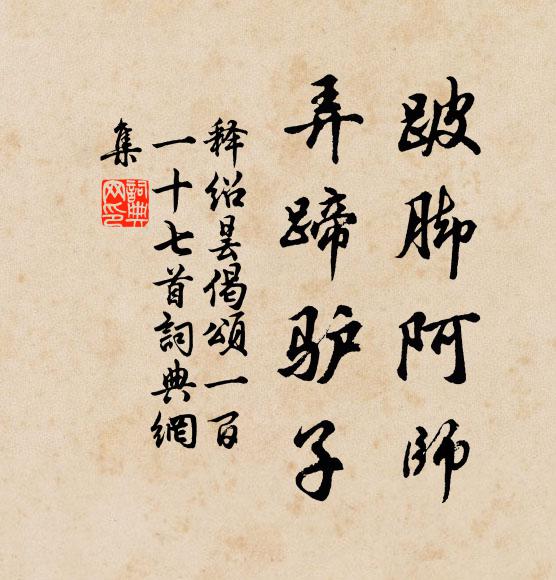 跛脚阿师
弄蹄驴子
释绍昙偈頌一百
一十七首詞典網
集
詞典
网印